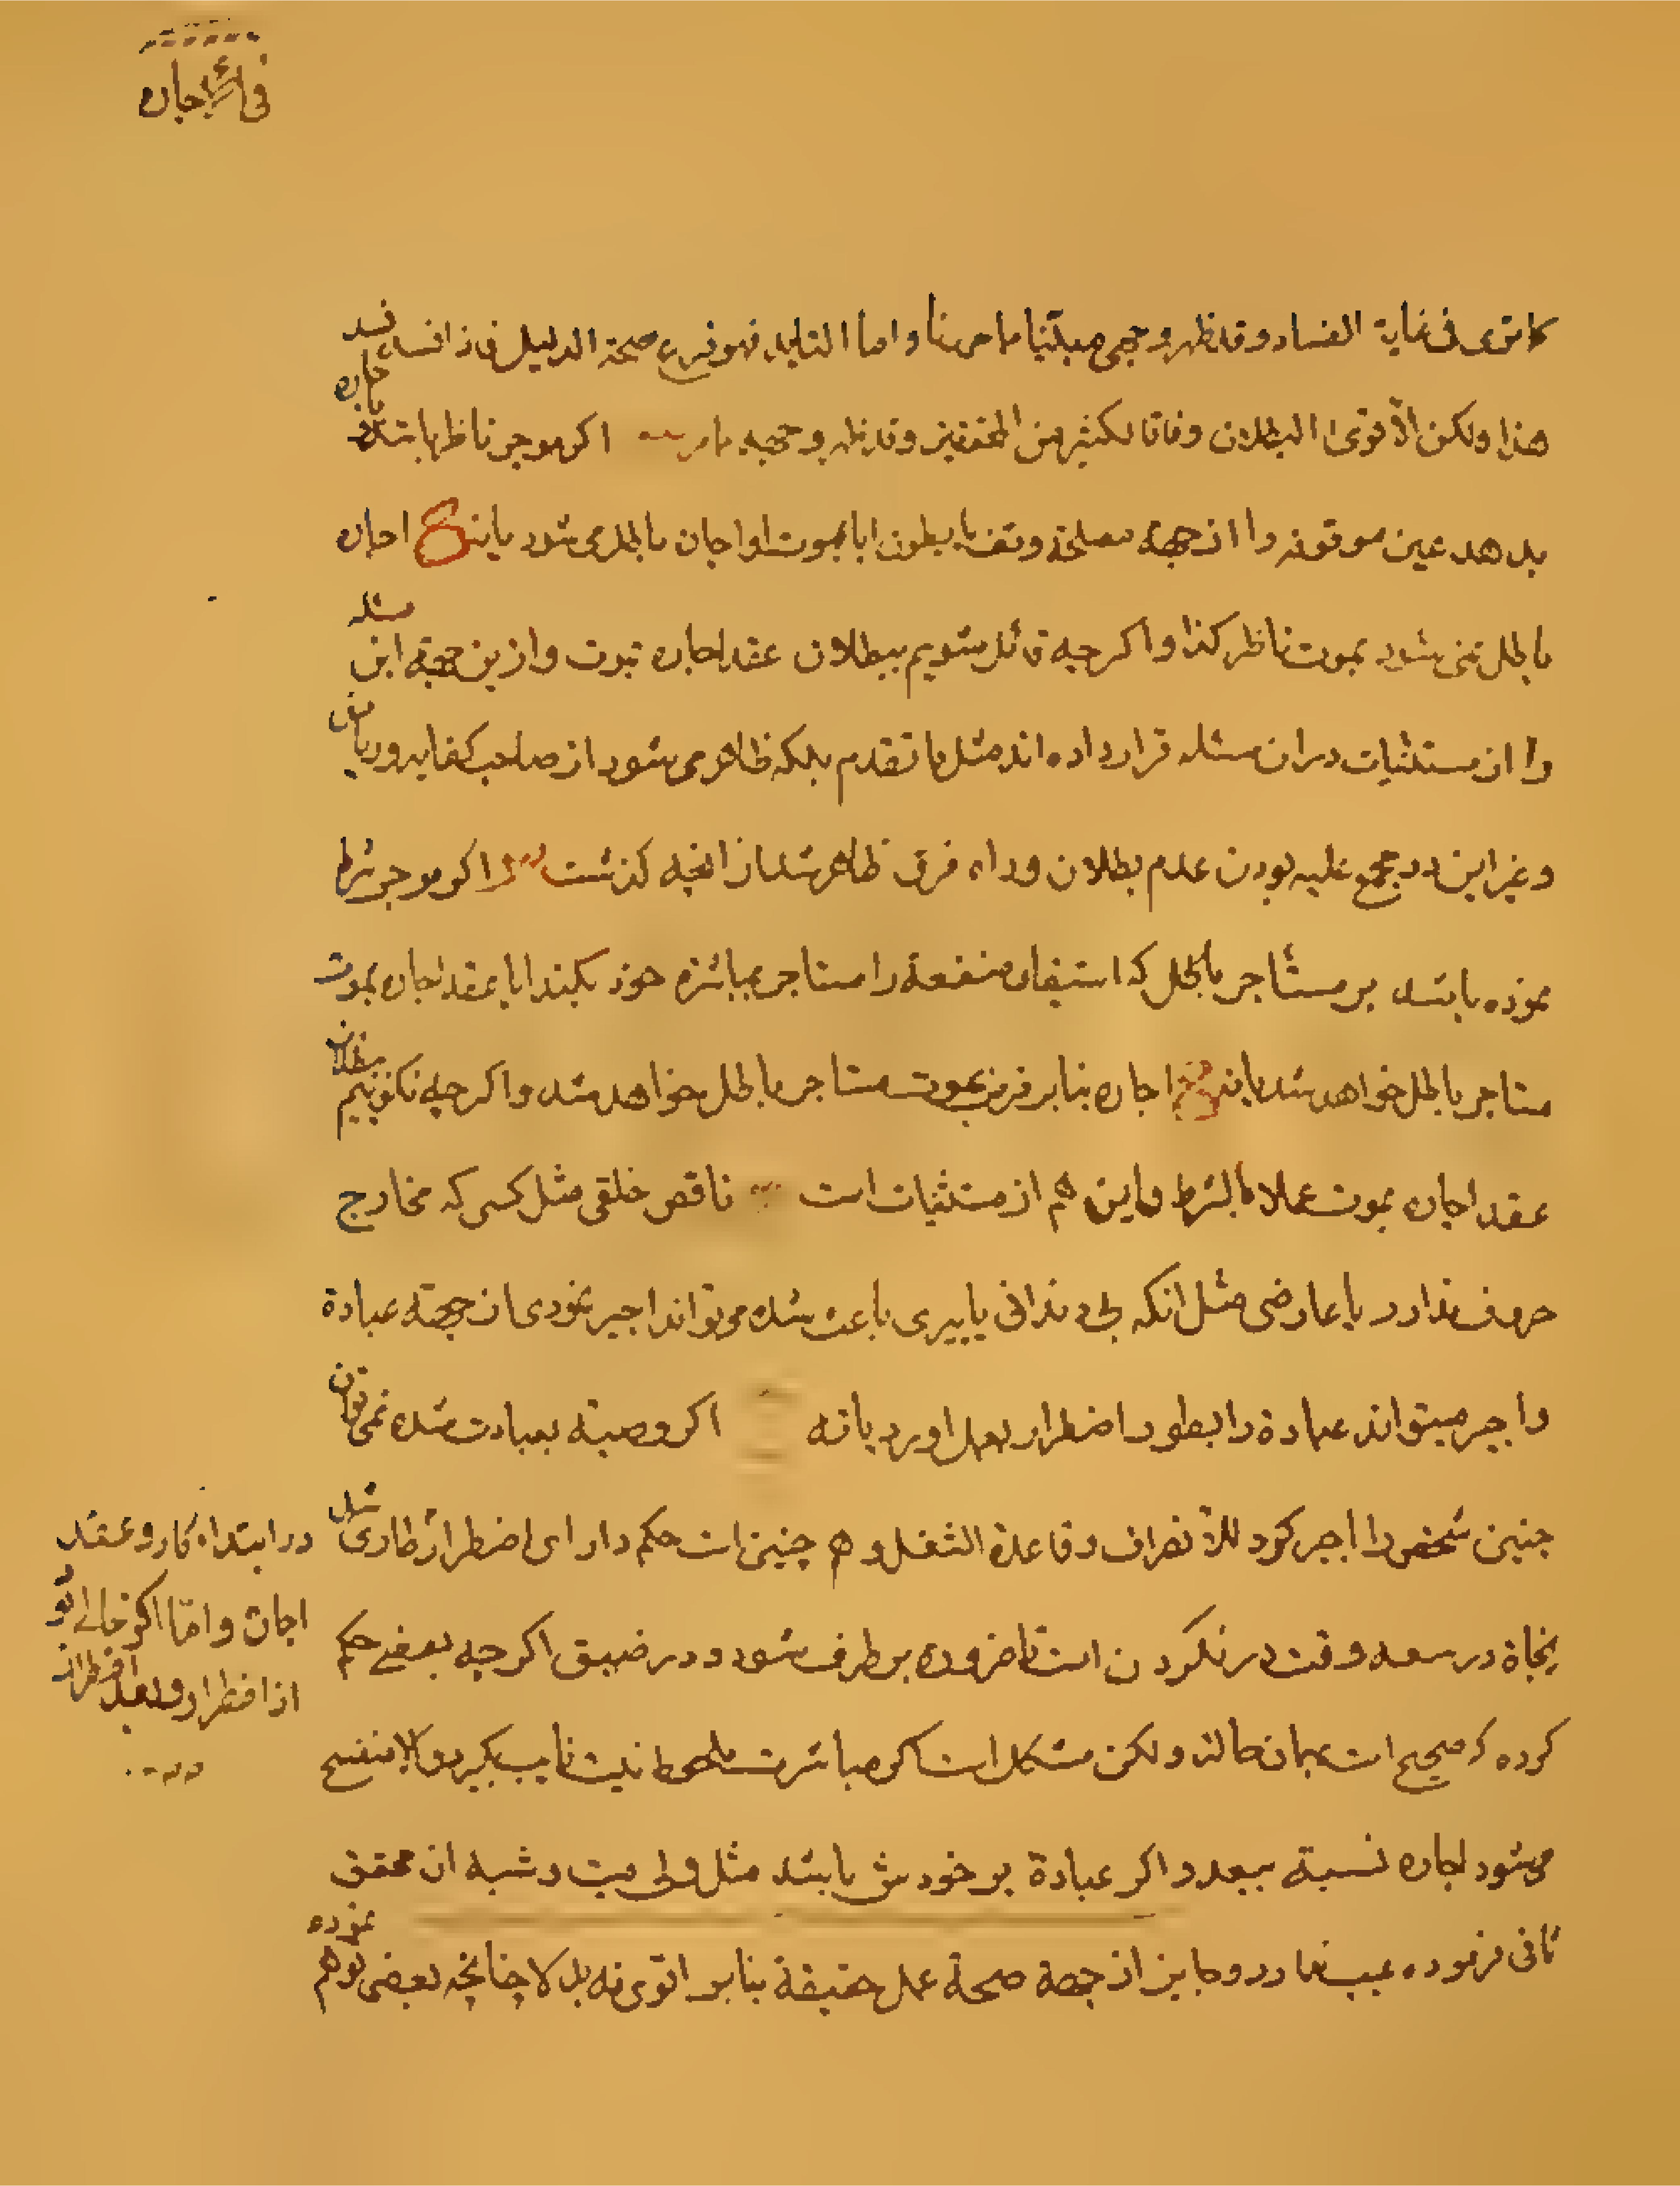 في الاجاره
كما ترى في غاية الفساد وقد ظهر وجهى مبتنيا ما حررنا واما التاييد فهو فرع صحة الدليل فاذا فسد فسد
هذا ولكن الأقوى البطلان وفاقا لكثير من المحققين وقد ظهر وجهه مامر اكر موجر ناظر باشد اجاره
بدهد عين موقوفه را از جهة مصلحة وقف يا بطون ايا بموت او اجاره باطل مى شود يا نه اجاره
باطل نمى شود بموت ناظر كذا واكرچه قائل شويم ببطلان عقد اجاره بموت وازين جهة اين مسئله
را از مستثنيات دران مسئله قرار داده اند مثل ما تقدم بلكه ظاهر مى شود از صاحب كفايه ورياض
وغير اين دو مجمع عليه بودن عدم بطلان وراء فرق ظاهر شد از انچه كذشت اكر موجر شرط
نموده باشد بر مستأجر باطل كه استيفاء منفعة را مستاجر بمباشره خود بكند ايا عقد اجاره بموت
مستاجر باطل خواهد شد يا نه اجاره بنابر فرض بموت مستاجر باطل خواهد شد واكرچه نكوييم ببطلان
عقد اجاره بموت عملا بالشرط واين هم از مستثنيات است ناقص خلقى مثل كسى كه مخارج
حروف ندارد يا عارضى مثل انكه بى دندانى يا پيرى باعث شده مى تواند اجير نمود از جهة عبادة
واجير ميتواند عبادة را بطور اضطرار بعمل اورد يا نه اكر وصية بعبادت شده نمى توان
چنين شخص را اجير كرد للانصراف وقاعدة الشغل وهم چنين است حكم داراى اضطرار طارى مثل
نجاة در سعه وقت در نكردن است تا ضروره بر طرف شود ودر ضيق اكرچه بعضى حكم
كرده كه صحيح است بهمان حالة ولكن مشكل است اكر مباشرت ملحوظ نيست نايب بكيرد والا منفسخ
مى شود اجاره نسبة ببعد واكر عبادة بر خودش باشد مثل ولى ميت وشبه ان محقق
ثانى فرموده عيب ندارد وجايز از جهة صحة عمل حقيقة بنابر اقوى نه بدلا چنانچه بعضى توهم نموده
در ابتداء كار وعقد
اجاره واما اكر خالى بود
از اضطرار وبعد اضطرار